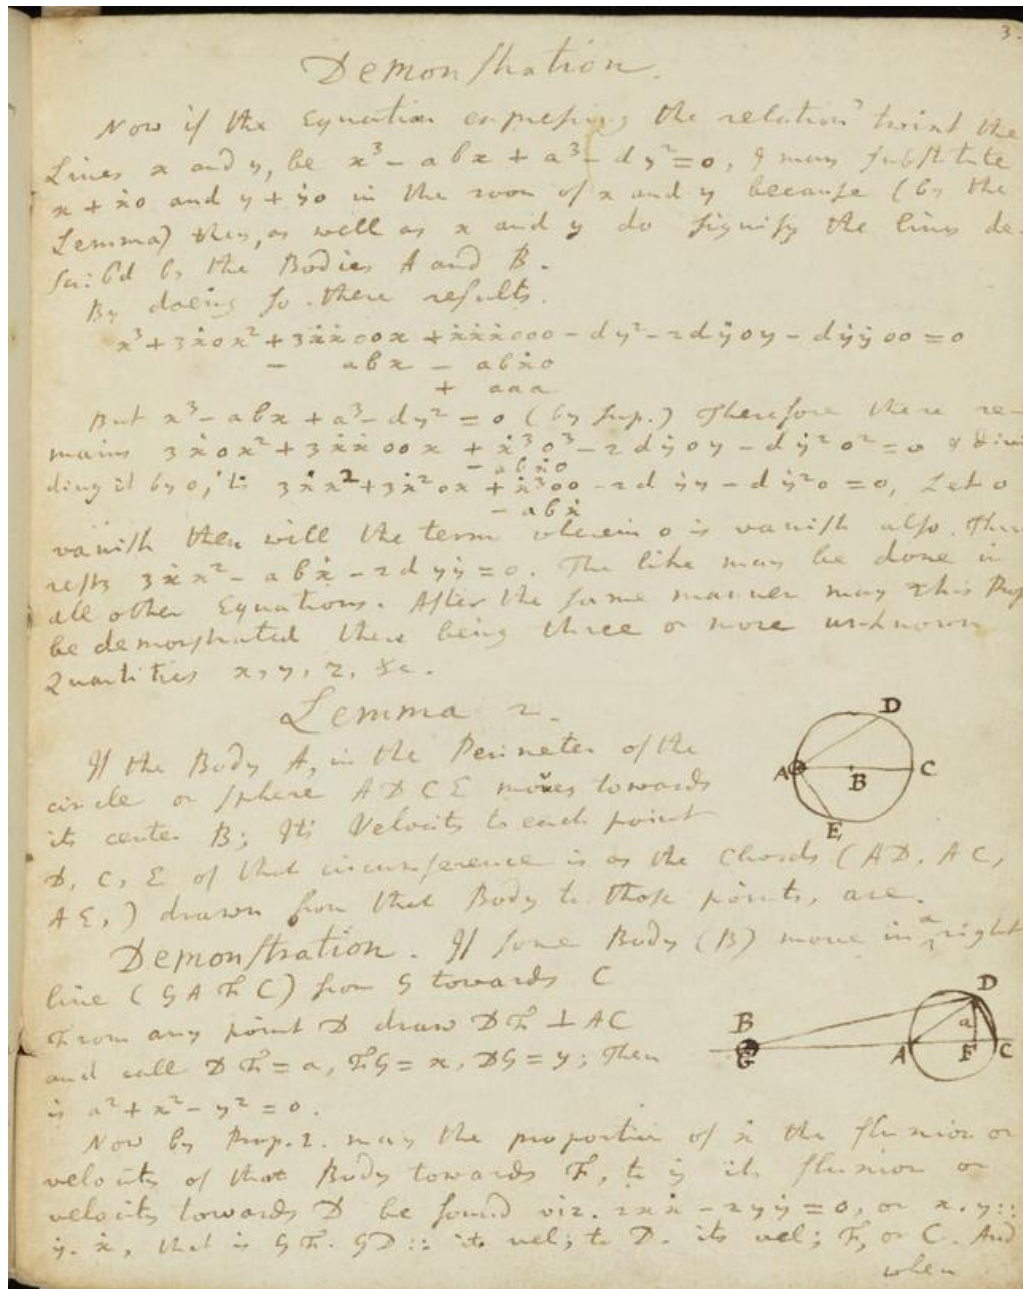 3.
Demonstration.
Now if the Equation expressing the relation twixt the
Lines x and y, be x³ – abx + a³ – dy² = 0, I may substitute
x + ẋo and y + ẏo in the room of x and y because (by the
Lemma) they, as well as x and y do signify the lines de-
scribd by the Bodies A and B.
By doeing so there results.
x³ + 3ẋox² + 3ẋẋoox + ẋẋẋooo – dy² – 2dẏoy – dẏẏoo = 0
– abx – abẋo
+ aaa
But x³ – abx + a³ – dy² = 0 (by sup.) Therefore there re-
mains 3ẋox² + 3ẋẋoox + ẋ³o³ – 2dẏoy – dẏ²o² = 0 & divi
– abẋo
ding it by o, 'tis 3ẋx² + 3ẋ²ox + ẋ³oo – 2dẏy – dẏ²o = 0, Let o
– abẋ
vanish then will the term wherein o is vanish also. There
rests 3ẋx² – abẋ – 2dyẏ = 0. The like may be done in
all other Equations. After the same manner may this Prop
be demonstrated there being three or more unknown
Quantities x, y, z, &c.
Lemma 2.
D
A B C
E
If the Body A, in the Perimeter of the
circle or sphere ADCE moves towards
its center B; Its Velocity to each point
D, C, E of that circumference is as the Chords (AD. AC,
AE,) drawn from that Body to those points, are.
Demonstration. If some Body (B) move in a right
line (GAFC) from G towards C
From any point D draw DF ⊥ AC
and call DF = a, FG = x, DG = y; Then
is a² + x² – y² = 0.
D
B a
G A F C
Now by Prop. 2. may the proportion of ẋ the fluxion or
velocity of that Body towards F, to ẏ its fluxion or
velocity towards D be found viz. 2xẋ – 2yẏ = 0, or x. y ::
ẏ. ẋ, that is GF. GD :: its vel; to D. its vel; F, or C. And
when